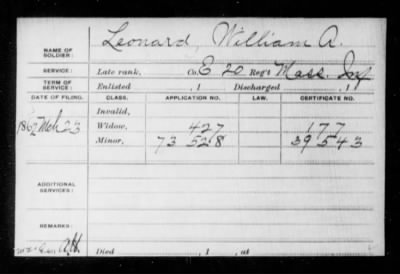 NAME OF SOLDIER: Leonard, William A.
SERVICE: Late rank, Co. E 20 Reg't Mass. Inf
TERM OF SERVICE: Enlisted , 1 Discharged , 1
DATE OF FILING. CLASS. APPLICATION NO. LAW. CERTIFICATE NO.
Invalid,
1862 Mch 23 Widow, 427 177
Minor, 73 528 39 543
ADDITIONAL SERVICES:
REMARKS:
Died , 1 , at